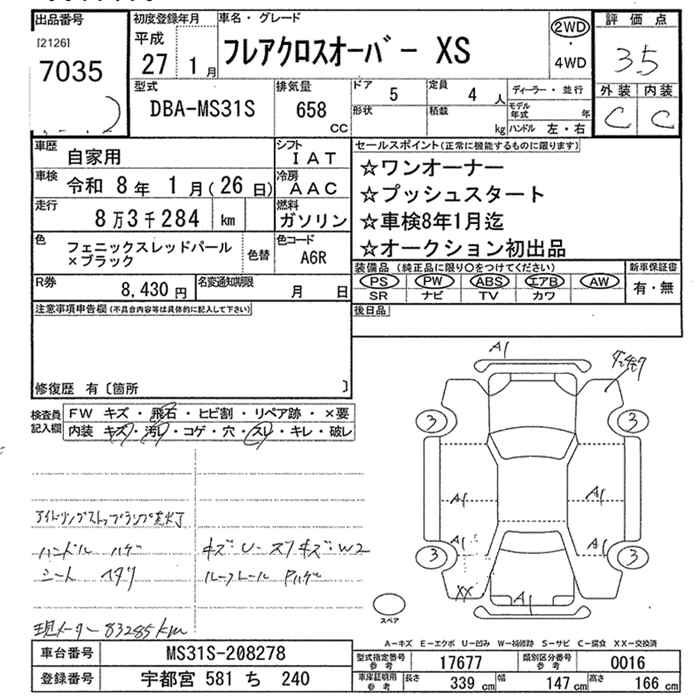 出品番号
[2126]
7035
初度登録年月
平成
27 1月
車名・グレード
フレアクロスオーバー XS
2WD
・
4WD
評価点
3.5
外装 内装
C C
型式
DBA-MS31S
排気量
658
CC
ドア
5
定員
4人
形状
積載
kg
ディーラー・並行
モデル年式 年
ハンドル 左・右
車歴
自家用
シフト
IAT
車検
令和 8年 1月(26日)
冷房
AAC
走行
8万3千284 km
燃料
ガソリン
色
フェニックスレッドパール
×ブラック
色替
色コード
A6R
R券
8,430円
名変通知期限
月 日
セールスポイント(正常に機能するものに限ります)
☆ワンオーナー
☆プッシュスタート
☆車検8年1月迄
☆オークション初出品
装備品 (純正品に限り○をつけてください)
PS PW ABS エアB AW
SR ナビ TV カワ
新車保証書
有・無
後日品
注意事項申告欄(不具合内容等は具体的に記入して下さい)
修復歴 有〔箇所 〕
検査員
記入欄
FW キズ・飛石・ヒビ割・リペア跡・×要
内装 キズ・汚レ・コゲ・穴・スレ・キレ・破レ
アイドリングストップランプ点灯
ハンドル ハゲ
シート ヘタリ
キズ:U-スリキズ:W2
ルーフレール Pハゲ
現メーター 83285km
A1
3 3
A1 A1
A1 A1
3 3
XX A1
スペア
A-キズ E-エクボ U-凹み W-補修跡 S-サビ C-腐食 XX-交換済
車台番号
MS31S-208278
登録番号
宇都宮 581 ち 240
型式指定番号
参考
17677
類別区分番号
参考
0016
車庫証明用
参考
長さ 339 cm 幅 147 cm 高さ 166 cm